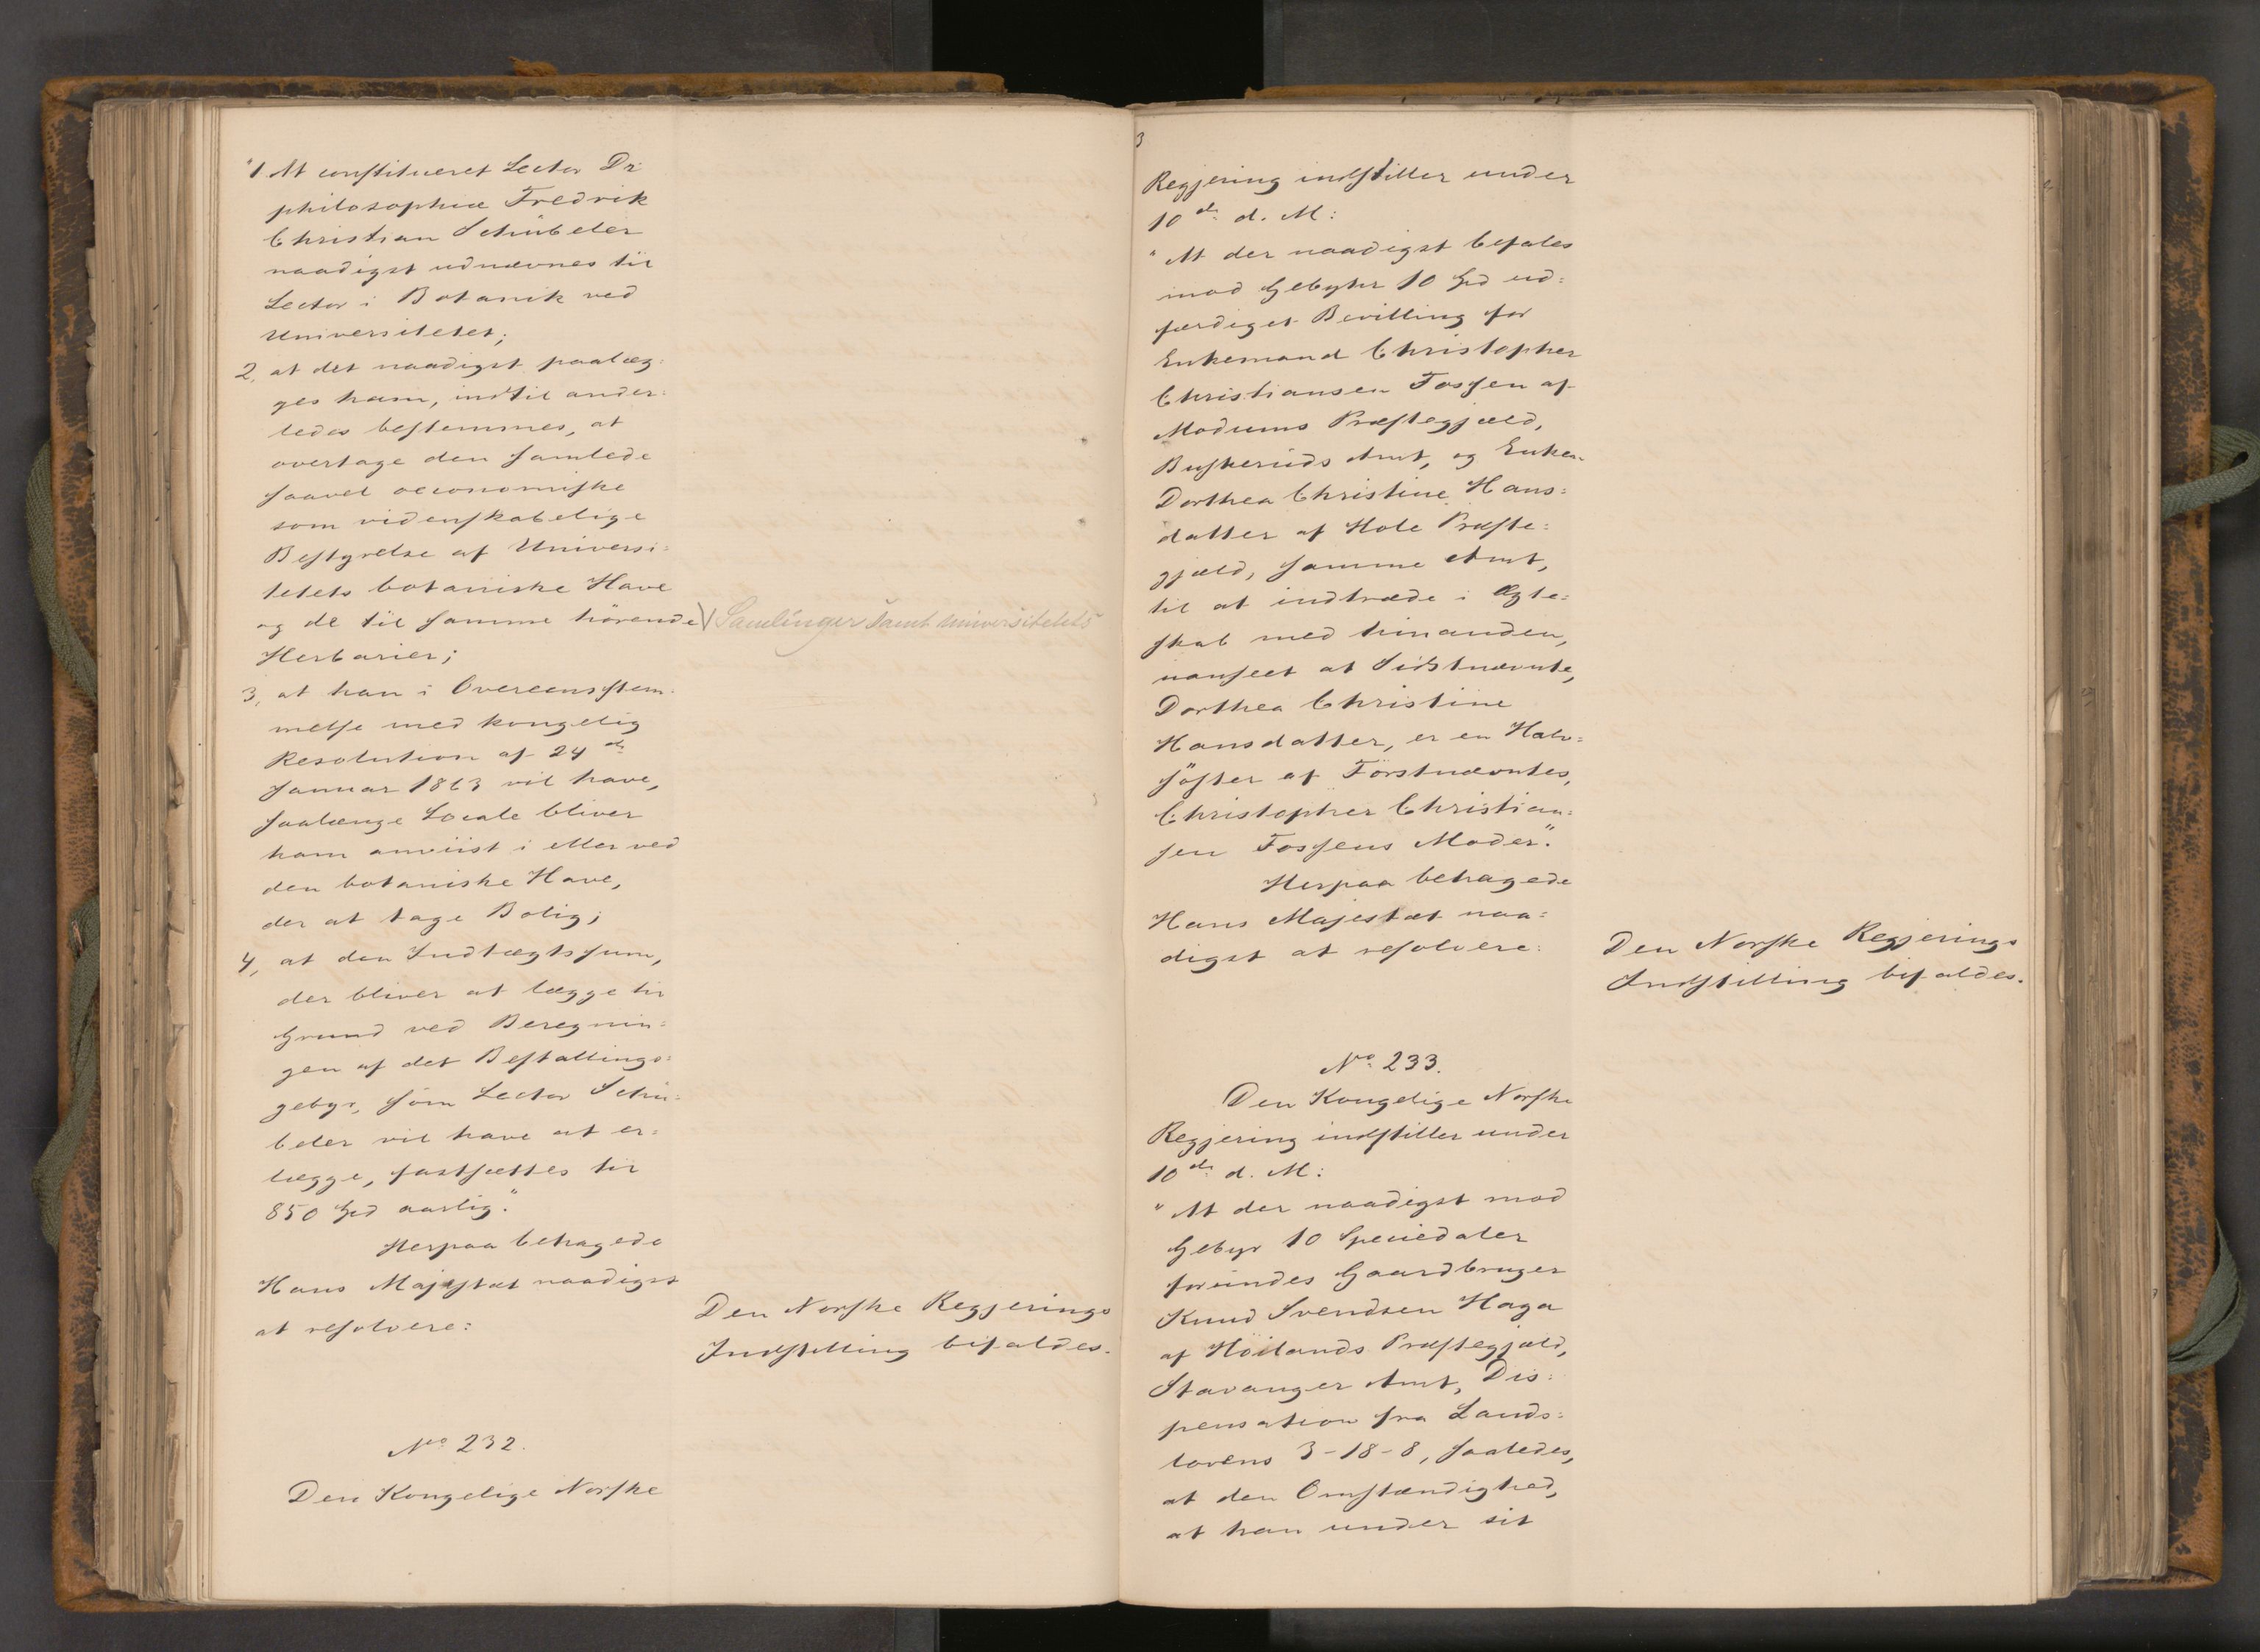 "1. At constitueret Lector Dr:
philosophiæ Fredrik
Christian Schübeler
naadigst udnævnes til
Lector i Botanik ved
Universitetet;
2, at det naadigst paalæg:
ges ham, indtil ander:
ledes bestemmes, at
overtage den samlede
saavel oeconomiske
som videnskabelige
Bestyrelse af Universi:
tetets botaniske Have
og de til samme hörende √ Samlinger samt Universitetets
Herbarier;
3, at han i Overeensstem:
melse med kongelig
Resolution af 24de
Januar 1863 vil have,
saalænge Locale bliver
ham anviist i eller ved
den botaniske Have,
der at tage Bolig;
4, at den Indtægtssum,
der bliver at lægge til
Grund ved Beregnin:
gen af det Bestallings:
gebyr, som Lector Schü:
beler vil have at er:
lægge, fastsættes til
850 Spd aarlig."
Herpaa behagede
Hans Majestæt naadigst
at resolvere:
Den Norske Regjerings
Indstilling bifaldes.
No 232.
Den Kongelige Norske
3
Regjering indstiller under
10de d. M:
"At der naadigst befales
mod Gebyhr 10 Spd ud:
færdiget Bevilling for
Enkemand Christopher
Christiansen Fossen af
Modums Præstegjæld,
Buskeruds Amt, og Enken
Dorthea Christine Hans:
datter af Hole Præste:
gjæld, samme Amt,
til at indtræde i Ægte:
skab med hinanden,
uanseet at Sidstnævnte,
Dorthea Christine
Hansdatter, er en Halv:
söster af Förstnævntes,
Christopher Christian:
sen Fossens Moder."
Herpaa behagede
Hans Majestæt naa:
digst at resolvere:
Den Norske Regjerings
Indstilling bifaldes.
No 233.
Den Kongelige Norske
Regjering indstiller under
10de d. M:
"At der naadigst mod
Gebyr 10 Speciedaler
forundes Gaardbruger
Knud Svendsen Haga
af Höilands Præstegjæld,
Stavanger Amt, Dis:
pensation fra Lands:
lovens 3-18-8, saaledes,
at den Omstændighed,
at han under sit